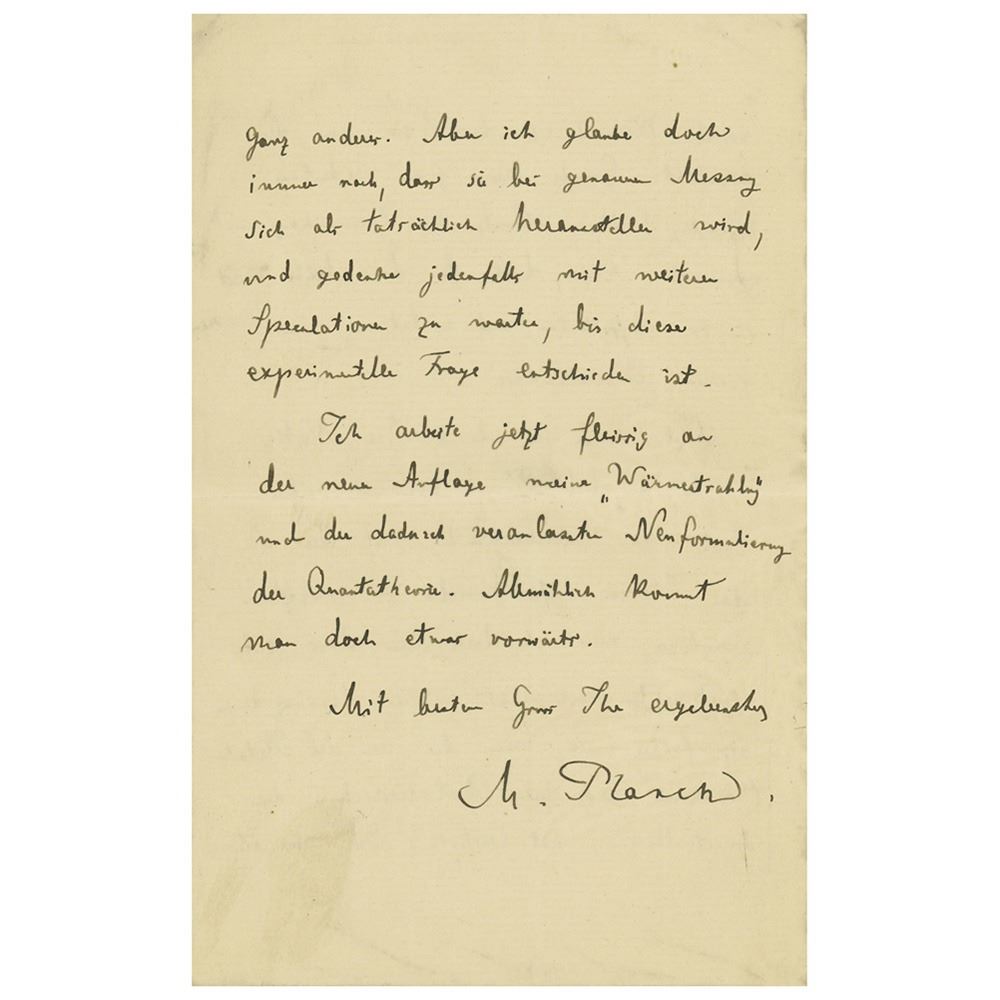 ganz anderer. Aber ich glaube doch
immer noch, dass sie bei genauer Messung
sich als tatsächlich herausstellen wird,
und gedenke jedenfalls mit weiteren
Speculationen zu warten, bis diese
experimentelle Frage entschieden ist.
Ich arbeite jetzt fleissig an
der neuen Auflage meiner „Wärmestrahlung"
und der dadurch veranlassten Neuformulierung
der Quantatheorie. Allmählich kommt
man doch etwas vorwärts.
Mit bestem Gruss Ihr ergebenster
M. Planck.